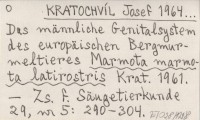 O KRATOCHVÍL Josef 1964...
Das männliche Genitalsystem
des europäischen Bergmur-
meltieres Marmota marmo-
ta latirostris Krat. 1961.
— Zs. f. Säugetierkunde
29, nr 5: 290-304.